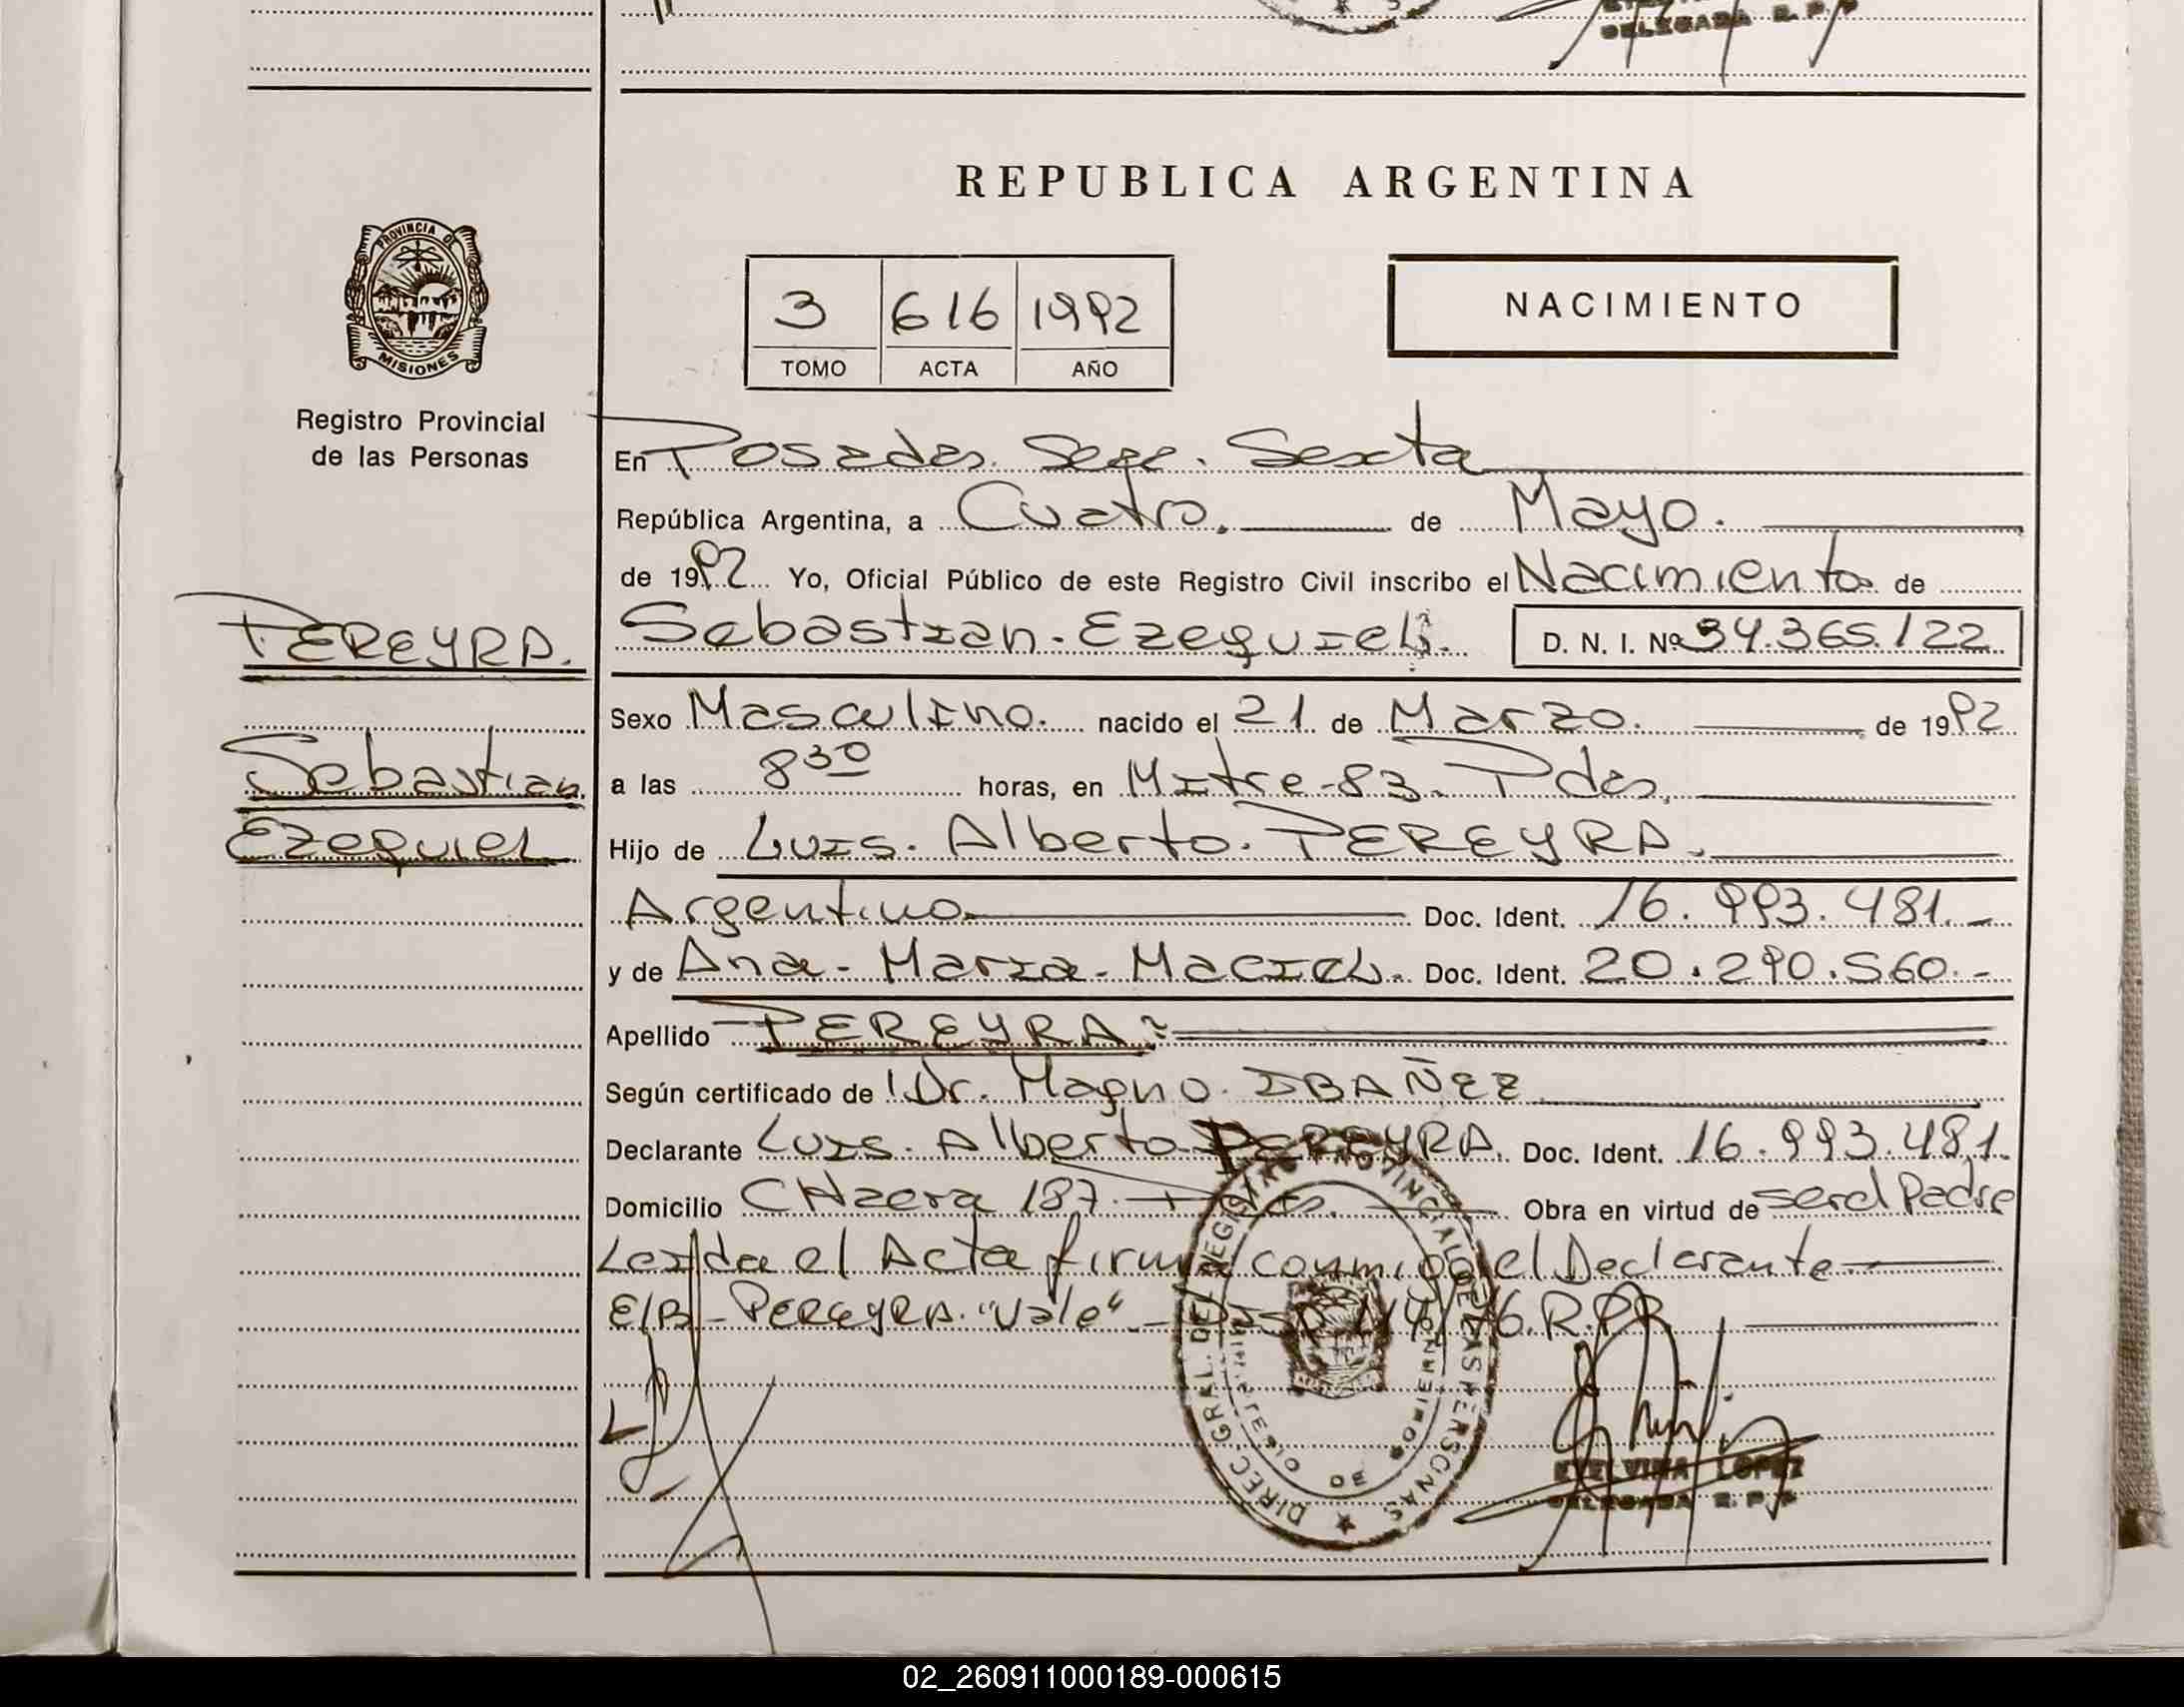 DELEGADA R. P. P
REPUBLICA ARGENTINA
PROVINCIA DE
MISIONES
Registro Provincial
de las Personas
3 616 1992
TOMO ACTA AÑO
NACIMIENTO
En Posadas. Secc. Sexta
República Argentina, a Cuatro. de Mayo.
de 1992 Yo, Oficial Público de este Registro Civil inscribo el Nacimiento de
PEREYRA.
Sebastian Ezequiel. D. N. I. Nº 34.365.122
Sexo Masculino. nacido el 21 de Marzo. de 1992
Sebastian
Ezequiel
a las 8 30 horas, en Mitre-83. Pdas.
Hijo de Luis. Alberto. PEREYRA.
Argentino Doc. Ident. 16.993.481.-
y de Ana- Maria- Maciel.- Doc. Ident. 20.290.560.-
Apellido PEREYRA
Según certificado de Dr. Magno. IBAÑEZ
Declarante Luis. Alberto PEREYRA. Doc. Ident. 16.993.481.
Domicilio 187. Obra en virtud de ser el Padre
Leida el Acta firma conmigo el Declarante
E/B- PEREYRA. "Vale".- R.P.P.
DIREC. GRAL. DEL REGISTRO PROVINCIAL DE LAS PERSONAS
MINISTERIO DE GOBIERNO
ETELVINA LOPEZ
DELEGADA R. P. P
02_260911000189-000615